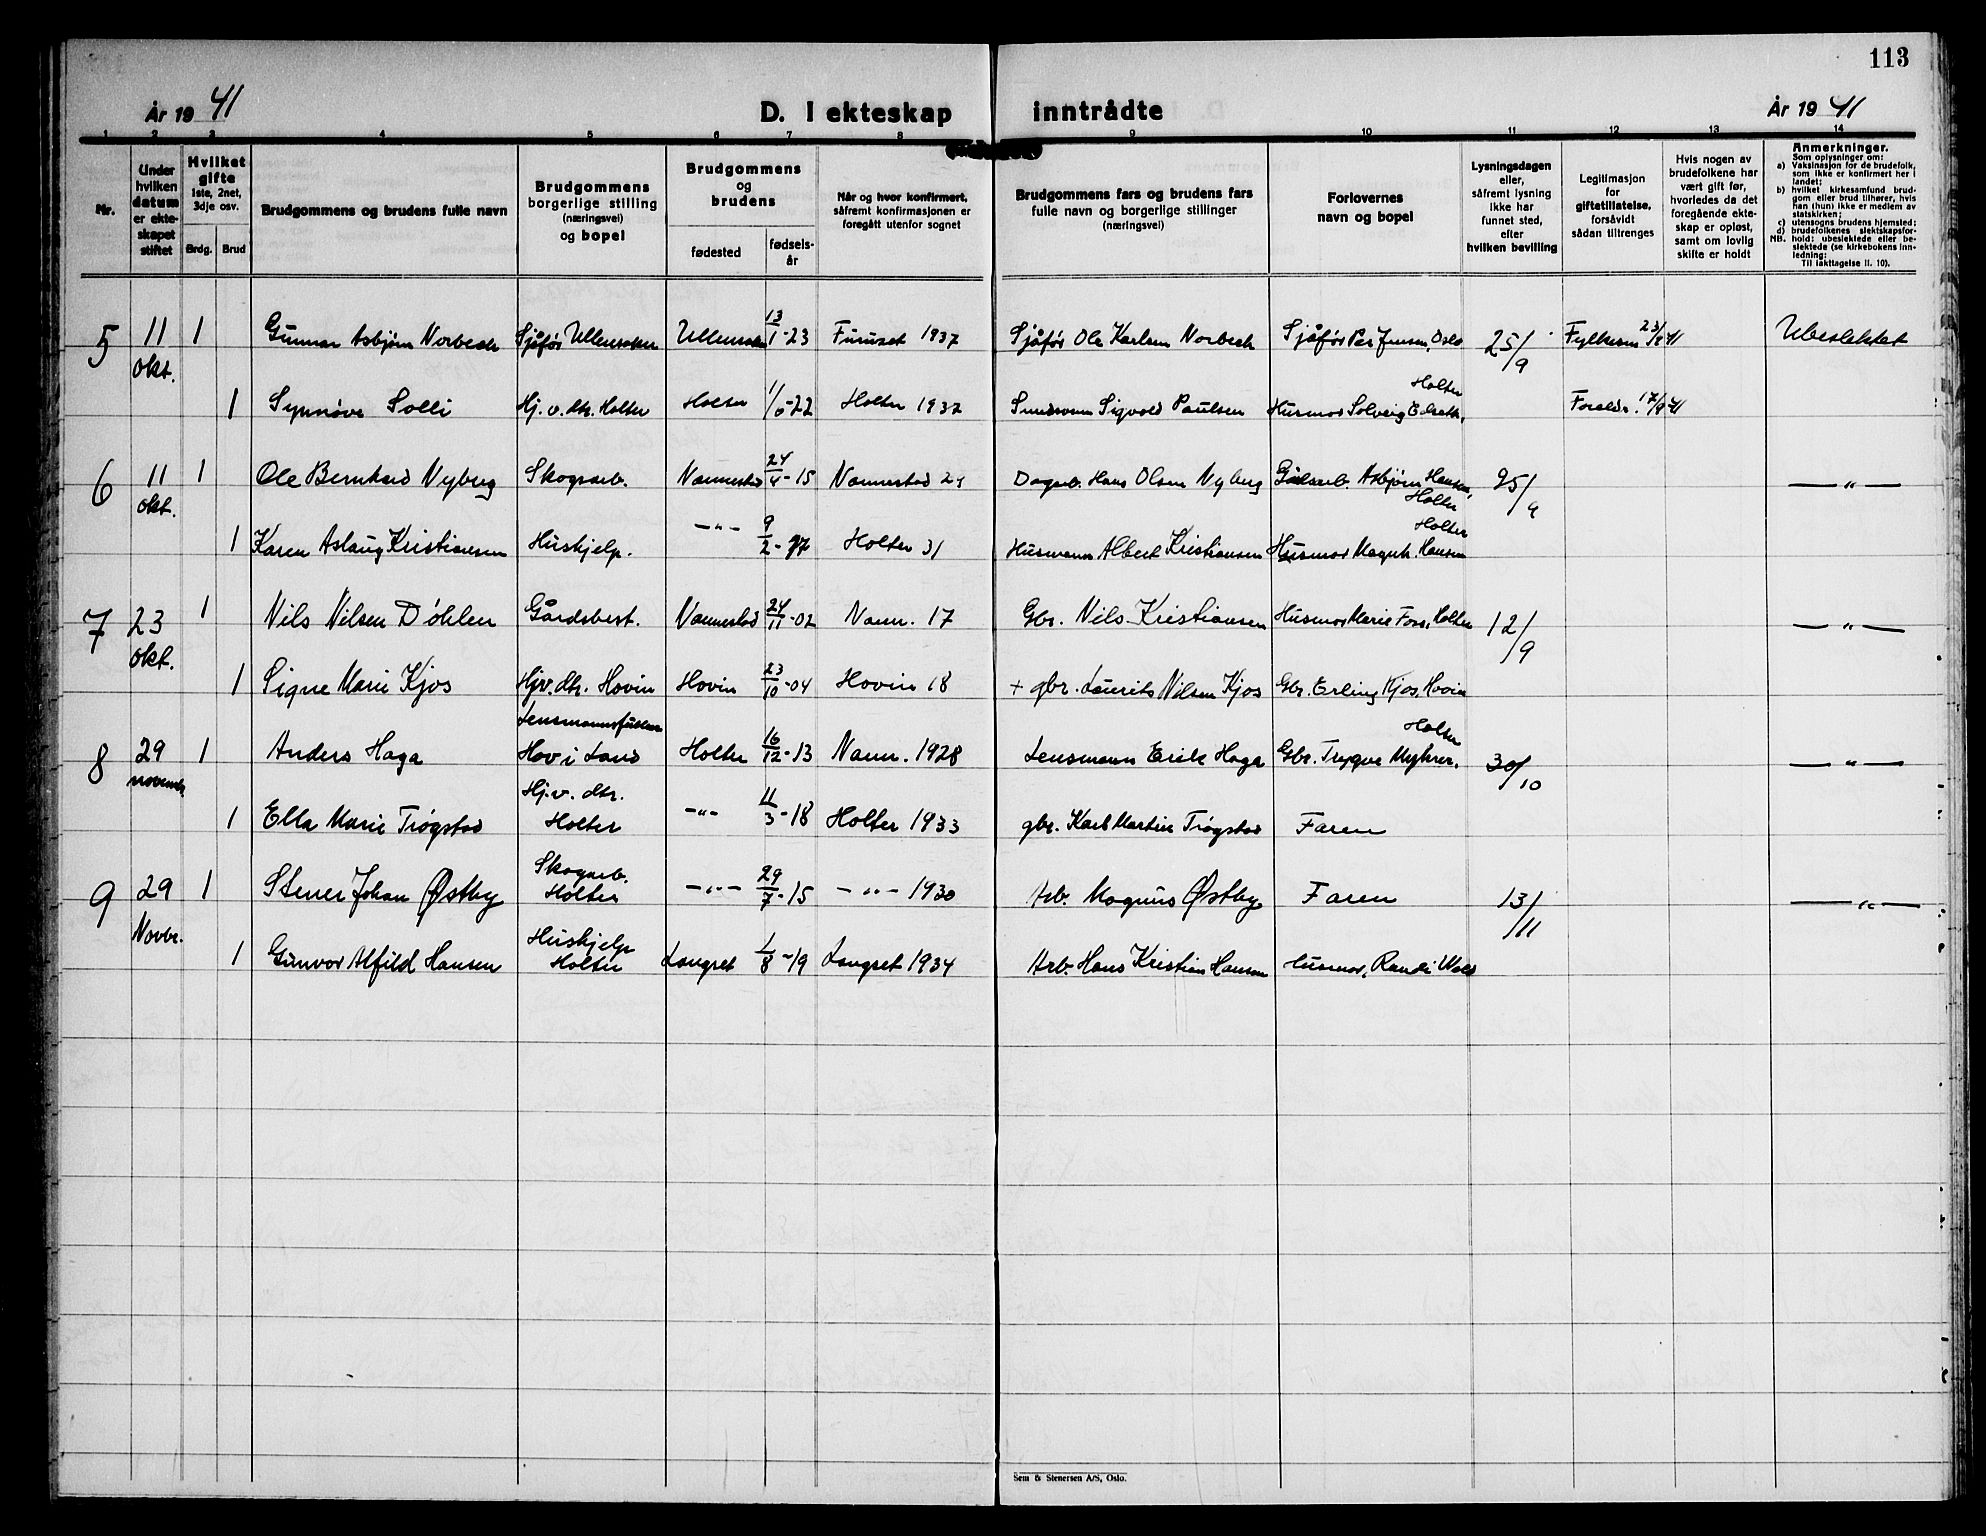 113
År 1941 D. I ekteskap inntrådte År 1941
1 2 3 4 5 6 7 8 9 10 11 12 13 14
Nr.
Under hvilken datum er ekte-skapet stiftet
Hvilket gifte 1ste, 2net, 3dje osv.
Brdg. Brud
Brudgommens og brudens fulle navn
Brudgommens borgerlige stilling (næringsvei) og bopel
Brudgommens og brudens
fødested fødsels-år
Når og hvor konfirmert, såfremt konfirmasjonen er foregått utenfor sognet
Brudgommens fars og brudens fars fulle navn og borgerlige stillinger (næringsvei)
Forlovernes navn og bopel
Lysningsdagen eller, såfremt lysning ikke har funnet sted, efter hvilken bevilling
Legitimasjon for giftetillatelse, forsåvidt sådan tiltrenges
Hvis nogen av brudefolkene har vært gift før, hvorledes da det foregående ekte-skap er opløst, samt om lovlig skifte er holdt
Anmerkninger.
Som oplysninger om:
a) Vaksinasjon for de brudefolk, som ikke er konfirmert her i landet;
b) hvilket kirkesamfund brud-gom eller brud tilhører, hvis han (hun) ikke er medlem av statskirken;
c) utensogns brudens hjemsted;
d) brudefolkenes slektskapsfor-hold: ubeslektede eller be-slektede (se kirkebokens inn-ledning;
NB. Til iakttagelse ll. 10).
5 11 okt. 1 Gunnar Asbjørn Norbech Sjåfør Ullensaker Ullensaker 13/1-23 Furuset 1937 Sjåfør Ole Karlsen Norbech Sjåfør Per Jensen, Oslo 25/9 Fylkesm 23/9 41 Ubeslektet
1 Synnøve Solli Hj.v.dtr. Holter Holter 1/6-22 Holter 1937 Sigvald Paulsen Husmor Solveig Holter Foreldr. 17/9 41
6 11 okt. 1 Ole Bernhard Nyberg Skogsarb. Nannestad 24/4-15 Nannestad 29 Dagarb. Hans Olsen Nyberg Gårdsarb. Asbjørn Hansen, Holter 25/9 —"—
1 Karen Aslaug Kristiansen Hushjelp. —"— 9/2-17 Holter 31 Husmann Albert Kristiansen Husmor Magnh. Hansen Holter
7 23 okt. 1 Nils Nilsen Døhlen Gårdsbest. Nannestad 24/11-02 Nann. 17 Gbr. Nils Kristiansen Husmor Marie Foss, Holter 12/9 —"—
1 Signe Marie Kjos Hjv. dtr. Hovin Hovin 23/10-04 Hovin 18 + gbr. Laurits Nilsen Kjos Gbr. Erling Kjos, Hovin
8 29 novemb. 1 Anders Haga Lensmannsfullm. Hov i Land Holter 16/12-13 Nann. 1928 Lensmann Erik Haga Gbr. Trygve Myhrer, Holter 30/10 —"—
1 Ella Marie Trøgstad Hj.v. dtr. Holter —"— 11/3-18 Holter 1933 gbr. Karl Martin Trøgstad Faren
9 29 Novbr. 1 Stener Johan Østby Skogarb. Holter —"— 29/7-15 —"— 1930 Arb. Magnus Østby Faren 13/11 —"—
1 Gunvor Alfild Hansen Hushjelp Holter Langset 1/8-19 Langset 1934 Arb. Hans Kristian Hansen Husmor, Randi
Sem & Stenersen A/S, Oslo.